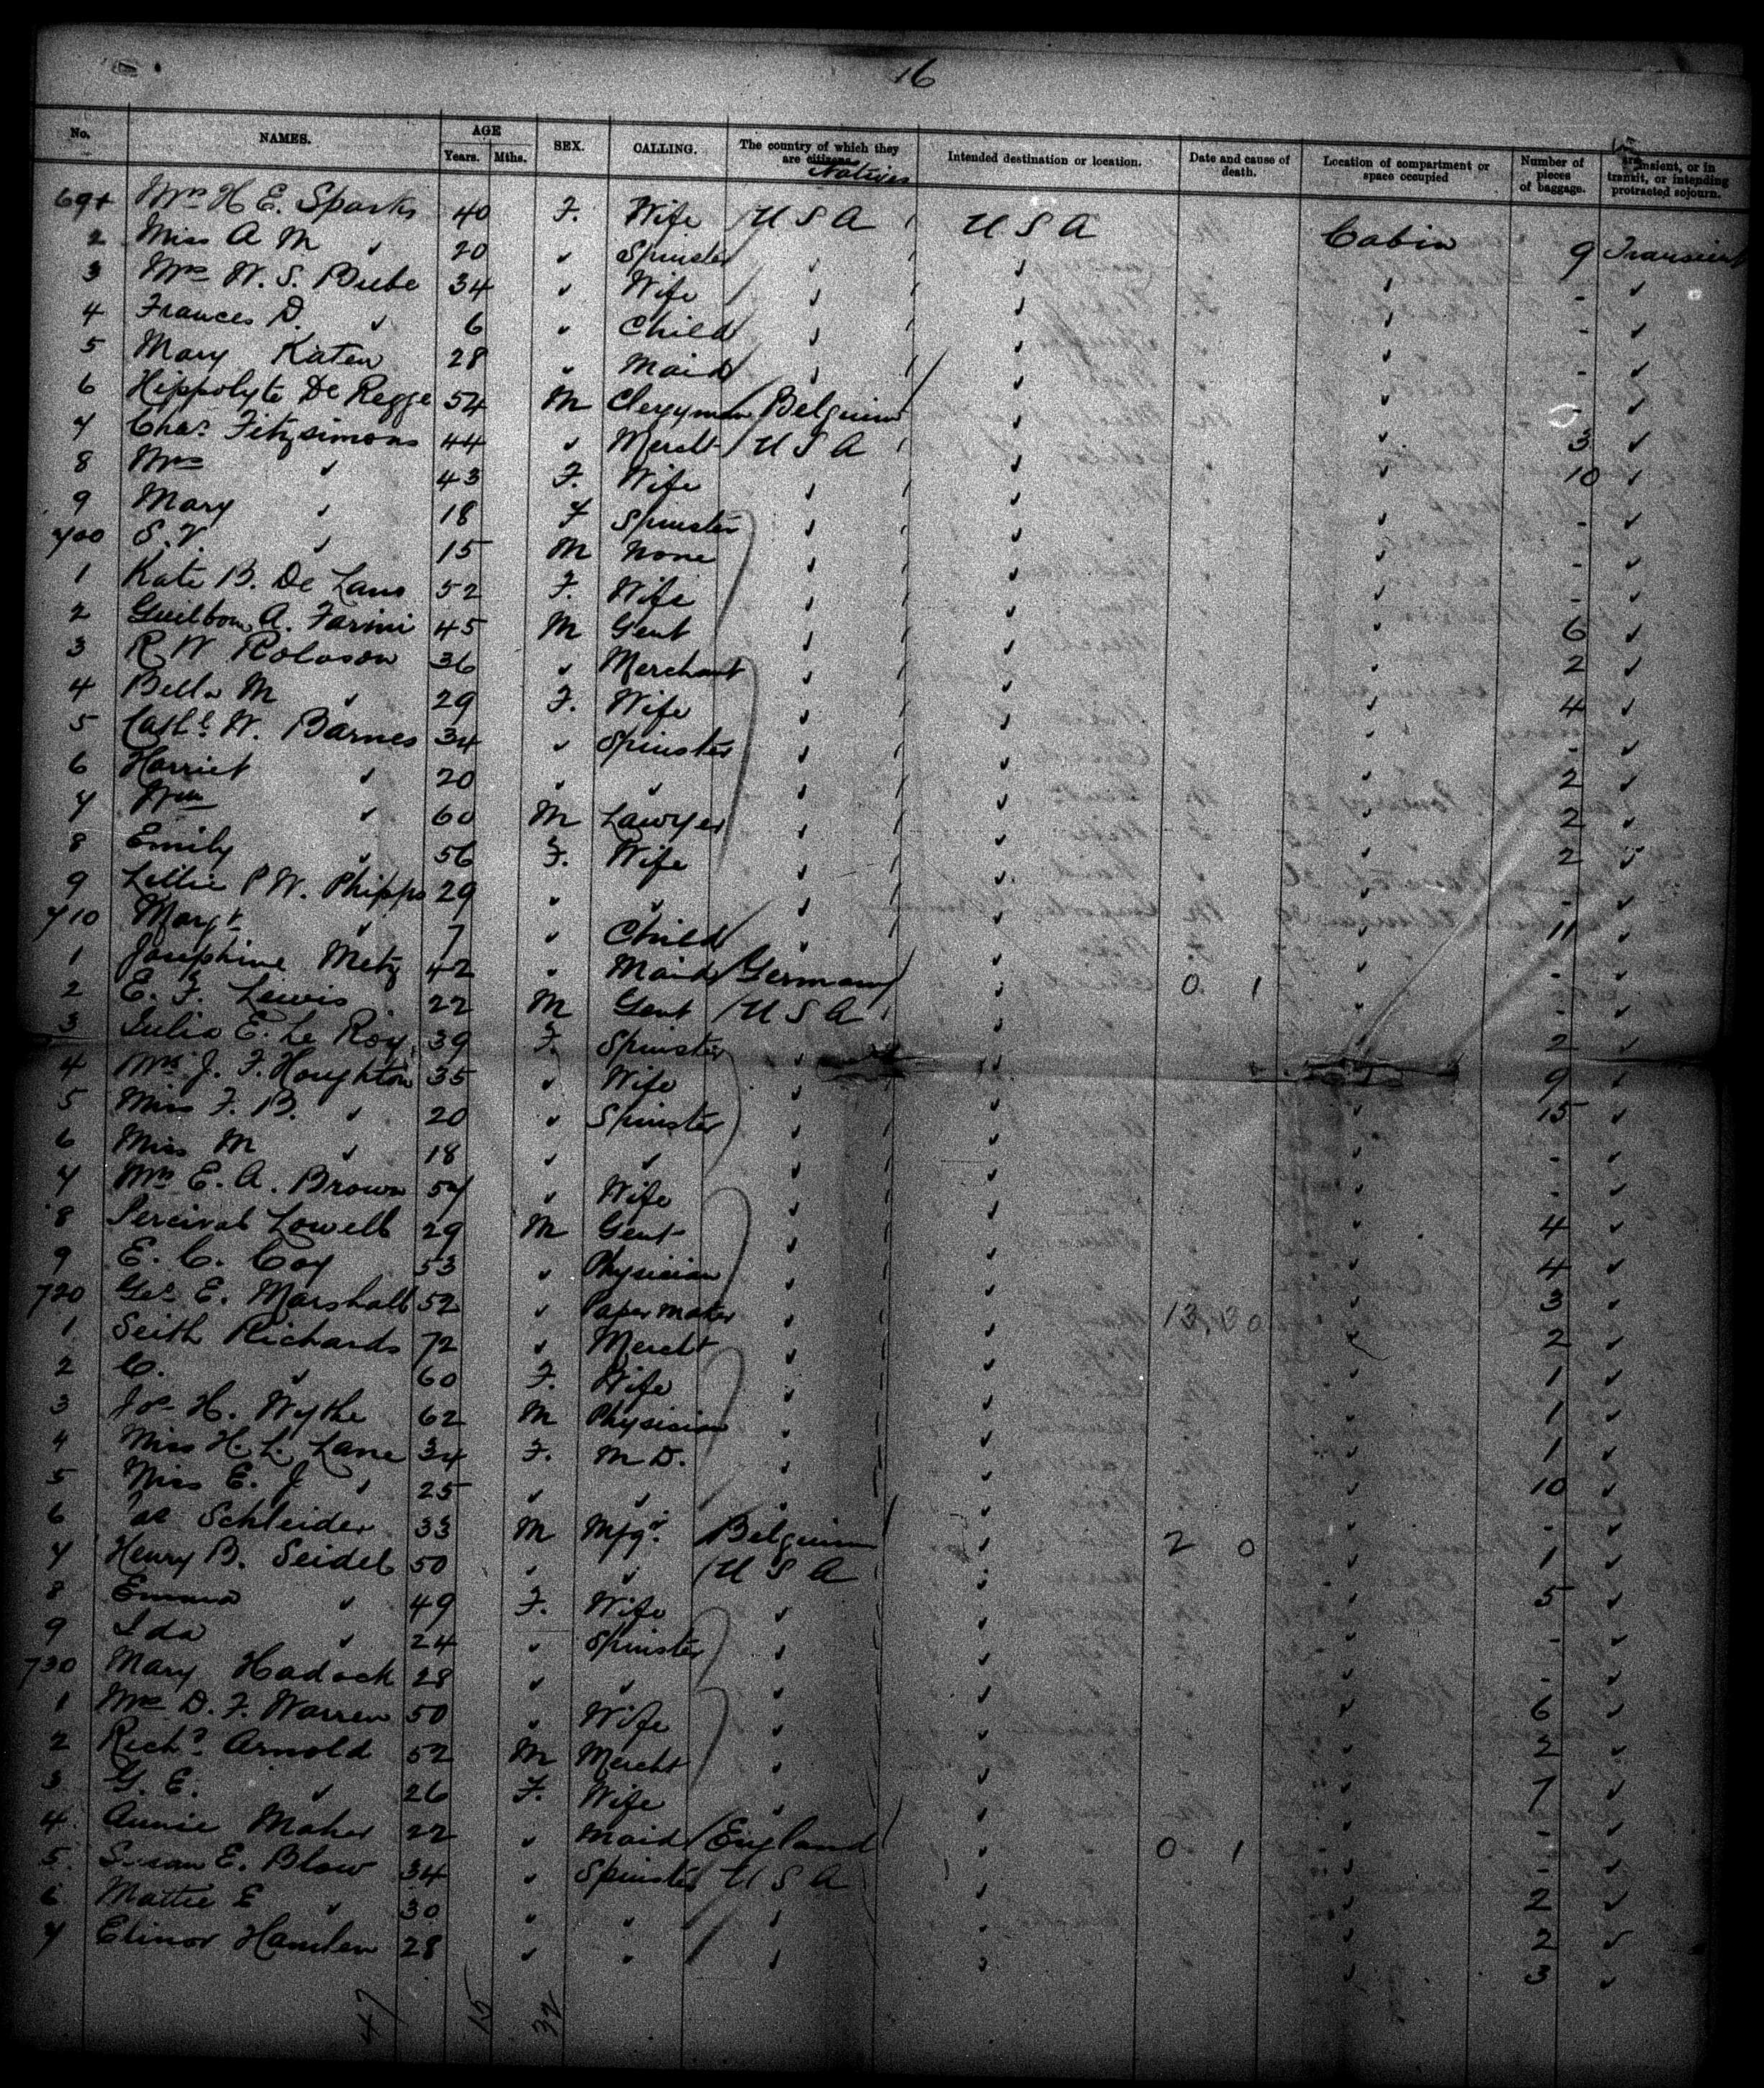 16
No. NAMES. AGE Years. Mths. SEX. CALLING. The country of which they are citizens Natives Intended destination or location. Date and cause of death. Location of compartment or space occupied Number of pieces of baggage. transient, or in transit, or intending protracted sojourn.
691 Mrs H E. Sparks 40 F. Wife U S A U S A Cabin 9 Transient
2 Miss A M ✓ 20 ✓ Spinster ✓ ✓ ✓ - ✓
3 Mrs W. S. Beebe 34 ✓ Wife ✓ ✓ ✓ - ✓
4 Frances D. ✓ 6 ✓ Child ✓ ✓ ✓ - ✓
5 Mary Katen 28 ✓ Maid ✓ ✓ ✓ - ✓
6 Hippolyte De Regge 54 M Clergyman Belgium ✓ ✓ 3 ✓
7 Chas. Fitzsimons 44 ✓ Mercht U S A ✓ ✓ 10 ✓
8 Mrs ✓ 43 F. Wife ✓ ✓ ✓ - ✓
9 Mary ✓ 18 F Spinster ✓ ✓ ✓ - ✓
700 S. V. ✓ 15 M None ✓ ✓ ✓ - ✓
1 Kate B. De Lano 52 F. Wife ✓ ✓ ✓ 6 ✓
2 A. Farini 45 M Gent ✓ ✓ ✓ 2 ✓
3 R W Roloson 36 ✓ Merchant ✓ ✓ ✓ 4 ✓
4 Bella M ✓ 29 F. Wife ✓ ✓ ✓ - ✓
5 W. Barnes 34 ✓ Spinster ✓ ✓ ✓ 2 ✓
6 Harriet ✓ 20 ✓ ✓ ✓ ✓ ✓ 2 ✓
7 Wm ✓ 60 M Lawyer ✓ ✓ ✓ 2 ✓
8 Emily ✓ 56 F. Wife ✓ ✓ ✓ - ✓
9 Lillie P W. Phipps 29 ✓ ✓ ✓ ✓ ✓ 11 ✓
710 Margt ✓ 7 ✓ Child ✓ ✓ ✓ - ✓
1 Josephine Metz 42 ✓ Maid Germany ✓ 0 1 ✓ - ✓
2 E. F. Lewis 22 M Gent U S A ✓ ✓ 2 ✓
3 Julia E. Le Roy 39 F. Spinster ✓ ✓ ✓ 9 ✓
4 Mrs J. F. Houghton 35 ✓ Wife ✓ ✓ ✓ 15 ✓
5 Miss F. B. ✓ 20 ✓ Spinster ✓ ✓ ✓ - ✓
6 Miss M ✓ 18 ✓ ✓ ✓ ✓ ✓ - ✓
7 Mrs E. A. Brown 57 ✓ Wife ✓ ✓ ✓ 4 ✓
8 Percival Lowell 29 M Gent ✓ ✓ ✓ 4 ✓
9 E. C. Coy 53 ✓ Physician ✓ ✓ ✓ 3 ✓
720 Geo. E. Marshall 52 ✓ Paper maker ✓ ✓ 13, 30 ✓ 2 ✓
1 Seith Richards 72 ✓ Mercht ✓ ✓ ✓ 1 ✓
2 C. ✓ 60 F. Wife ✓ ✓ ✓ 1 ✓
3 Jos H. Wythe 62 M Physician ✓ ✓ ✓ 1 ✓
4 Miss H. L. Lane 34 F. M D. ✓ ✓ ✓ 10 ✓
5 Miss E. J ✓ 25 ✓ ✓ ✓ ✓ ✓ - ✓
6 Schleider 33 M Mfgr. Belgium ✓ 2 0 ✓ 1 ✓
7 Henry B. Seidel 50 ✓ ✓ U S A ✓ ✓ 5 ✓
8 Emma ✓ 49 F. Wife ✓ ✓ ✓ - ✓
9 Ida ✓ 24 ✓ Spinster ✓ ✓ ✓ - ✓
730 Mary Hadock 28 ✓ ✓ ✓ ✓ ✓ 6 ✓
1 Mrs D. F. Warren 50 ✓ Wife ✓ ✓ ✓ 2 ✓
2 Richd. Arnold 52 M Mercht ✓ ✓ ✓ 7 ✓
3 G. E. ✓ 26 F. Wife ✓ ✓ ✓ - ✓
4 Annie Maher 22 ✓ Maid England ✓ 0 1 ✓ - ✓
5 Susan E. Blow 34 ✓ Spinster U S A ✓ ✓ 2 ✓
6 Mattie E ✓ 30 ✓ ✓ ✓ ✓ ✓ 2 ✓
7 Elinor Hamlen 28 ✓ ✓ ✓ ✓ ✓ 3 ✓
47 15 32